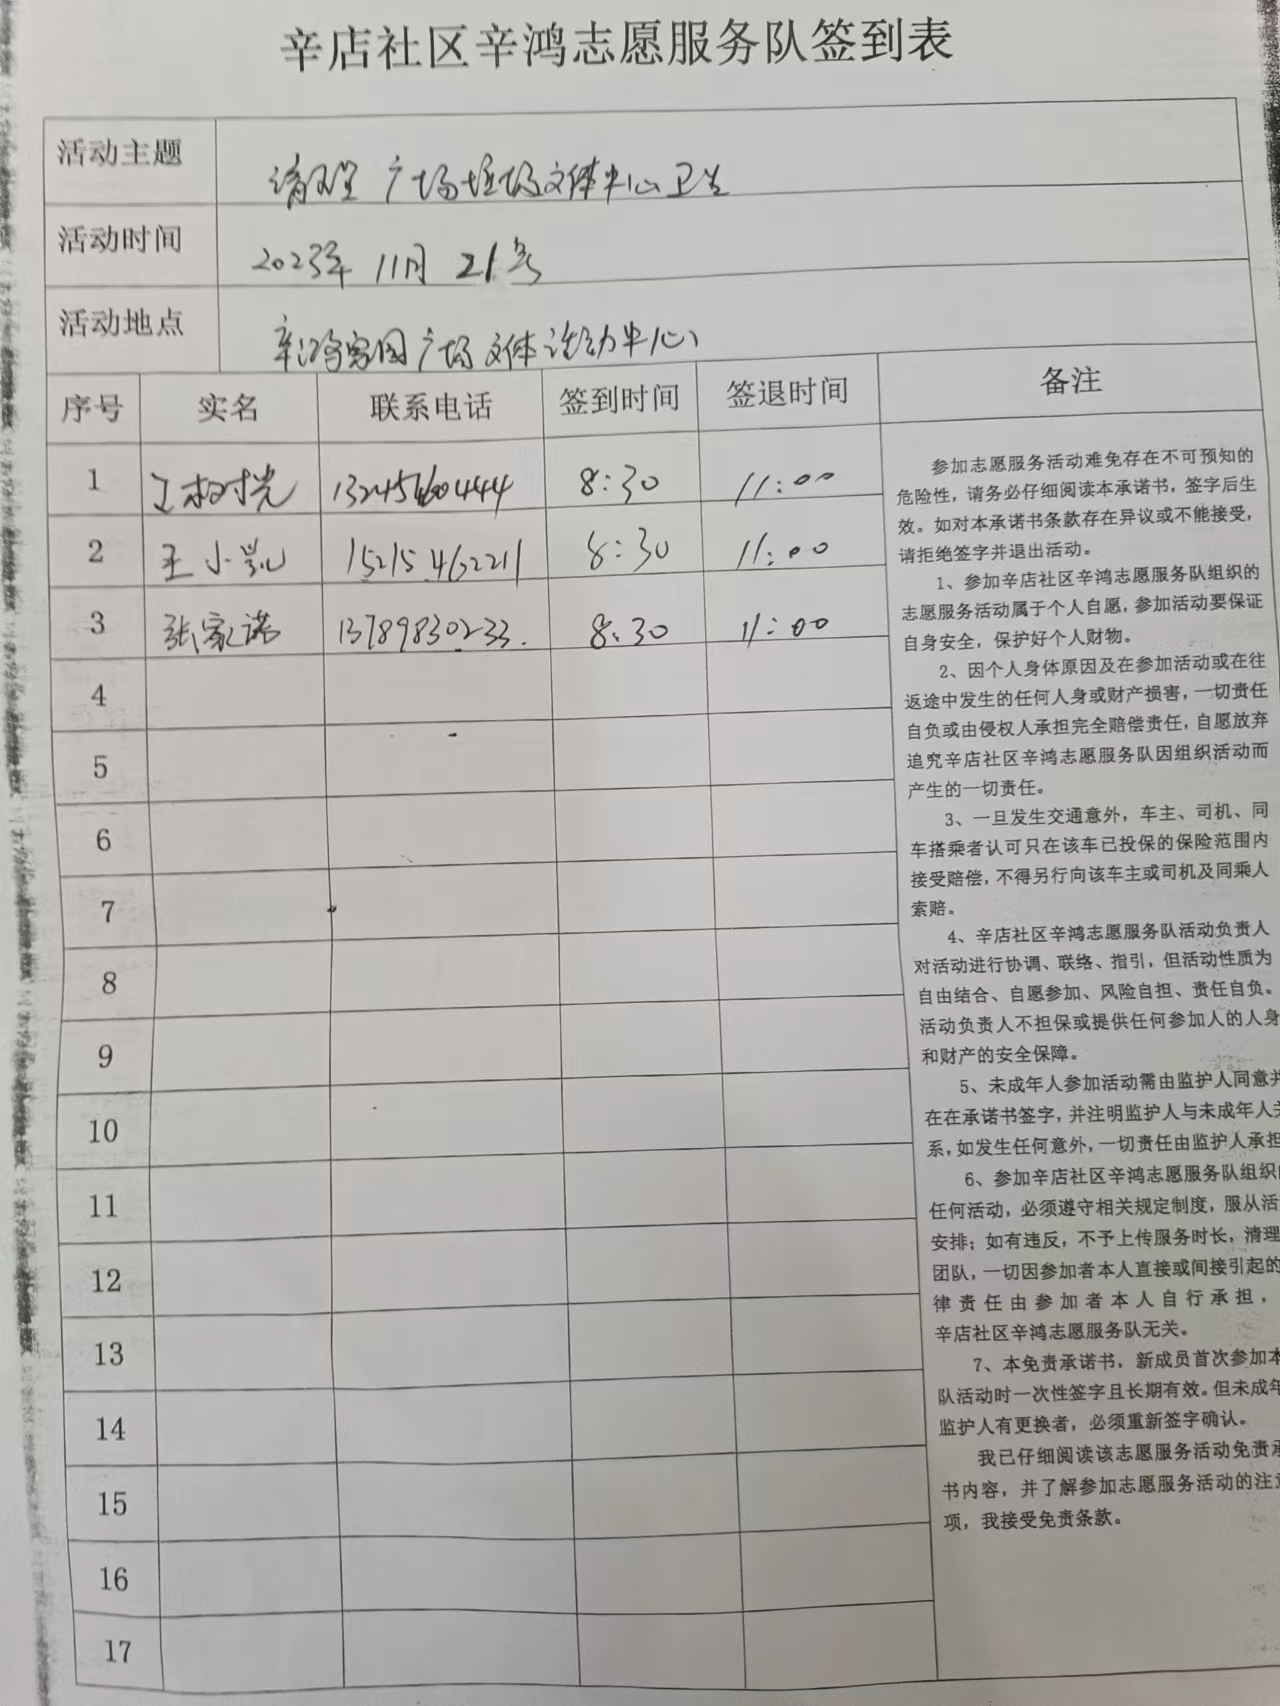 辛店社区辛鸿志愿服务队签到表
活动主题 广场 文体中心卫生
活动时间 2023年 11月 21号
活动地点 辛鸿家园广场 文体活动中心
序号 实名 联系电话 签到时间 签退时间 备注
1 王树光 8:30 11:00
2 王小凯 15215462211 8:30 11:00
3 张家诺 13789830233. 8:30 11:00
4
5
6
7
8
9
10
11
12
13
14
15
16
17
参加志愿服务活动难免存在不可预知的
危险性，请务必仔细阅读本承诺书，签字后生
效。如对本承诺书条款存在异议或不能接受，
请拒绝签字并退出活动。
1、参加辛店社区辛鸿志愿服务队组织的
志愿服务活动属于个人自愿，参加活动要保证
自身安全，保护好个人财物。
2、因个人身体原因及在参加活动或在往
返途中发生的任何人身或财产损害，一切责任
自负或由侵权人承担完全赔偿责任，自愿放弃
追究辛店社区辛鸿志愿服务队因组织活动而
产生的一切责任。
3、一旦发生交通意外，车主、司机、同
车搭乘者认可只在该车已投保的保险范围内
接受赔偿，不得另行向该车主或司机及同乘人
索赔。
4、辛店社区辛鸿志愿服务队活动负责人
对活动进行协调、联络、指引，但活动性质为
自由结合、自愿参加、风险自担、责任自负。
活动负责人不担保或提供任何参加人的人身
和财产的安全保障。
5、未成年人参加活动需由监护人同意并
在在承诺书签字，并注明监护人与未成年人关
系，如发生任何意外，一切责任由监护人承担
6、参加辛店社区辛鸿志愿服务队组织的
任何活动，必须遵守相关规定制度，服从活
安排；如有违反，不予上传服务时长，清理
团队，一切因参加者本人直接或间接引起的
律责任由参加者本人自行承担，
辛店社区辛鸿志愿服务队无关。
7、本免责承诺书，新成员首次参加本
队活动时一次性签字且长期有效。但未成年
监护人有更换者，必须重新签字确认。
我已仔细阅读该志愿服务活动免责承
书内容，并了解参加志愿服务活动的注意
项，我接受免责条款。